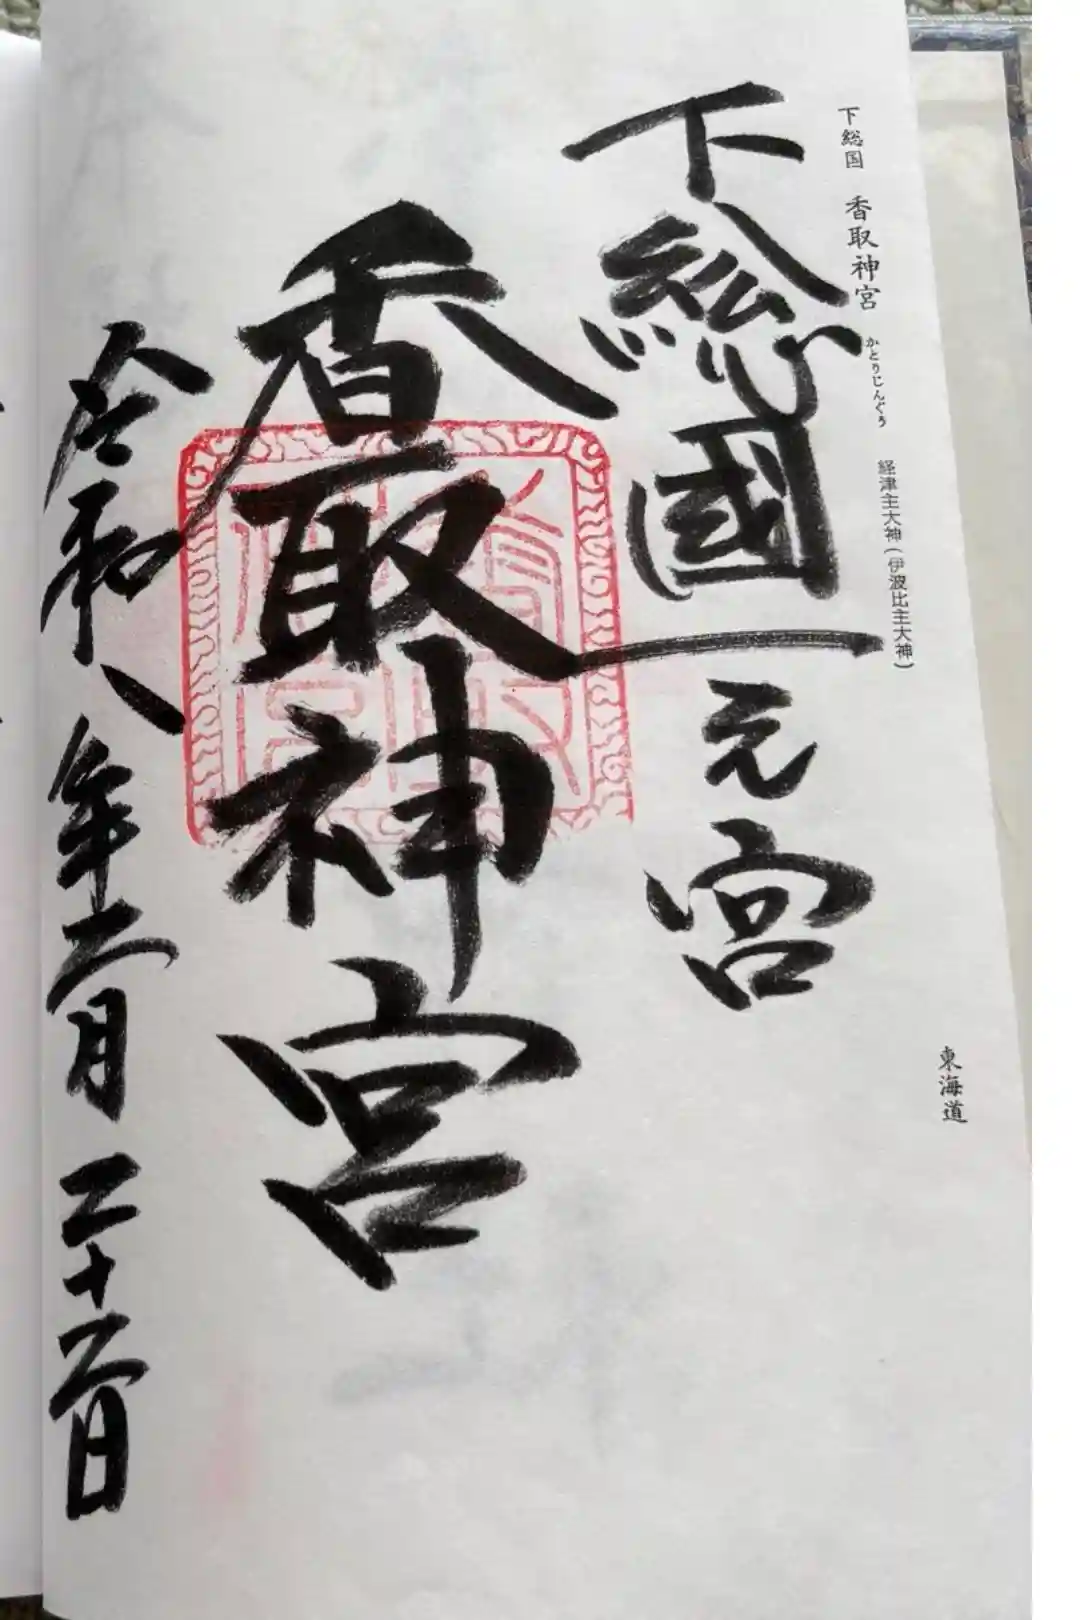 下総国 香取神宮 かとりじんぐう 経津主大神(伊波比主大神)
東海道
下総國一之宮
香取神宮
令和八年二月二十二日